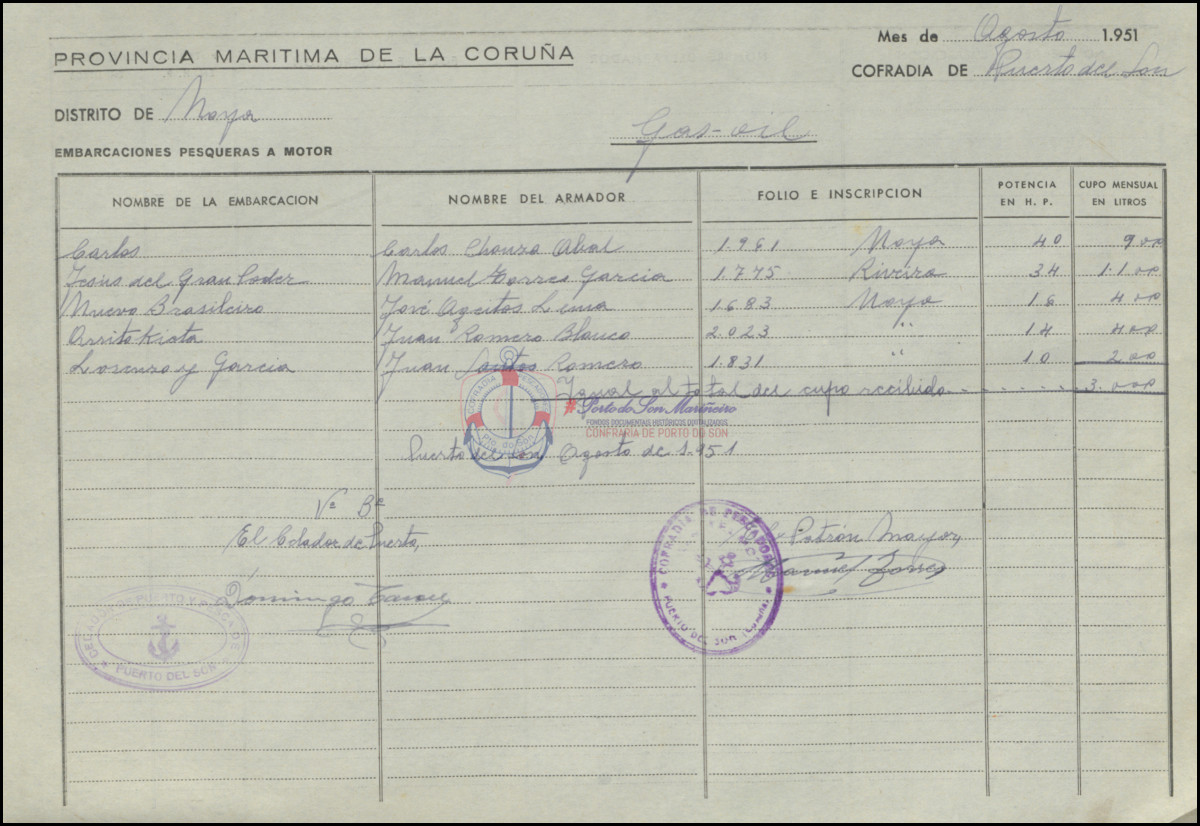 Mes de Agosto 1.951
PROVINCIA MARITIMA DE LA CORUÑA
COFRADIA DE Puerto del Son
DISTRITO DE Noya
Gas-oil
EMBARCACIONES PESQUERAS A MOTOR
NOMBRE DE LA EMBARCACION NOMBRE DEL ARMADOR FOLIO E INSCRIPCION POTENCIA EN H. P. CUPO MENSUAL EN LITROS
Carlos Carlos Chouza Abal 1.961 Noya 40 900
Jesús del Gran Poder Manuel Torres Garcia 1.775 Riveira 34 1.100
Nuevo Brasileiro José Ageitos Lema 1.683 Noya 16 400
Arritokieta Juan Romero Blanco 2.023 " 14 400
Lorenzo y Garcia Juan Santos Romero 1.831 " 10 200
Igual al total del cupo recibido 3.000
#Porto do Son Mariñeiro
FONDOS DOCUMENTAIS HISTÓRICOS DIXITALIZADOS
CONFRARÍA DE PORTO DO SON
Puerto del Son Agosto de 1.951
Vº Bº
El Celador de Puerto,
El Patrón Mayor,
Manuel Torres
Domingo
COFRADIA DE PESCADORES
PUERTO DEL SON (CORUÑA)
PUERTO DEL SON